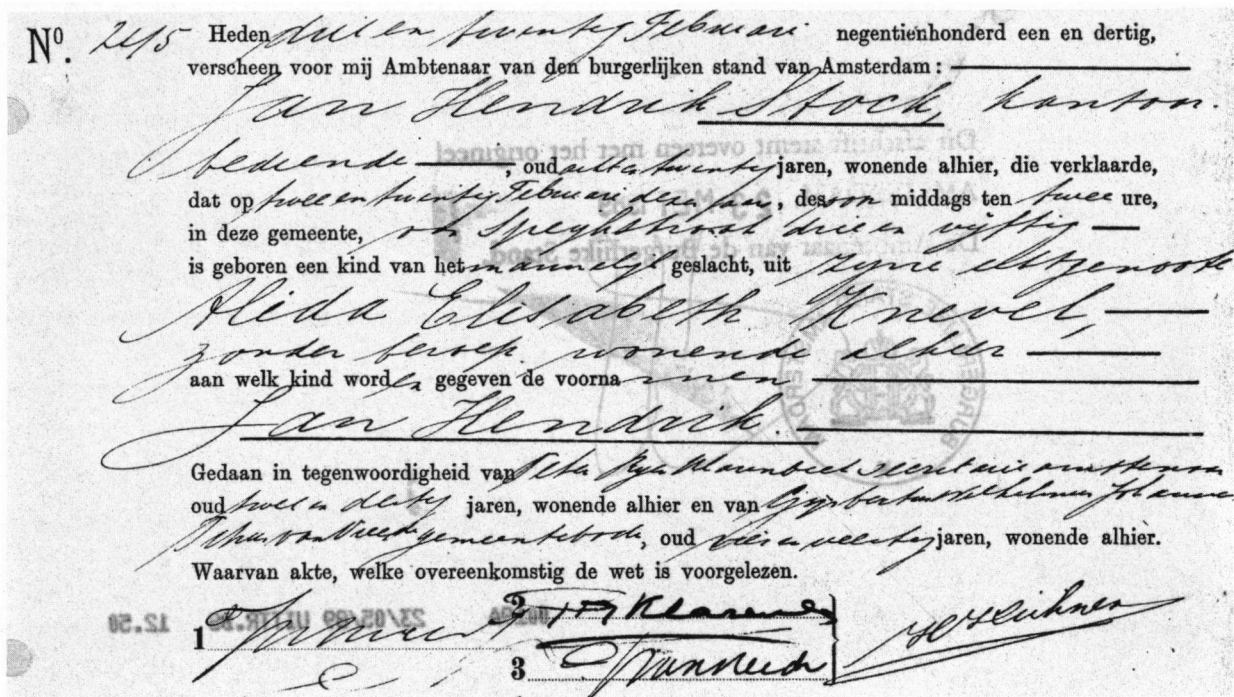 Nº. 2415 Heden drie en twintig Februari negentienhonderd een en dertig,
verscheen voor mij Ambtenaar van den burgerlijken stand van Amsterdam:
Jan Hendrik Stock, kantoor
bediende, oud twintig jaren, wonende alhier, die verklaarde,
dat op twee en twintig Februari dezes jaar, des voor middags ten twee ure,
in deze gemeente, van Speykstraat drie en vijftig
is geboren een kind van het mannelijk geslacht, uit zijne echtgenoote
Alida Elisabeth Knevel,
zonder beroep, wonende alhier
aan welk kind worden gegeven de voornamen
Jan Hendrik.
Gedaan in tegenwoordigheid van Peter Klarenbeek secretarie ambtenaar
oud twee en dertig jaren, wonende alhier en van Gijsbertus Wilhelmus Johannes
gemeentebode, oud vier en veertig jaren, wonende alhier.
Waarvan akte, welke overeenkomstig de wet is voorgelezen.
1
2
3
Dit afschrift stemt overeen met het origineel
De Ambtenaar van de Burgerlijke Stand,
23/05/89 12.50